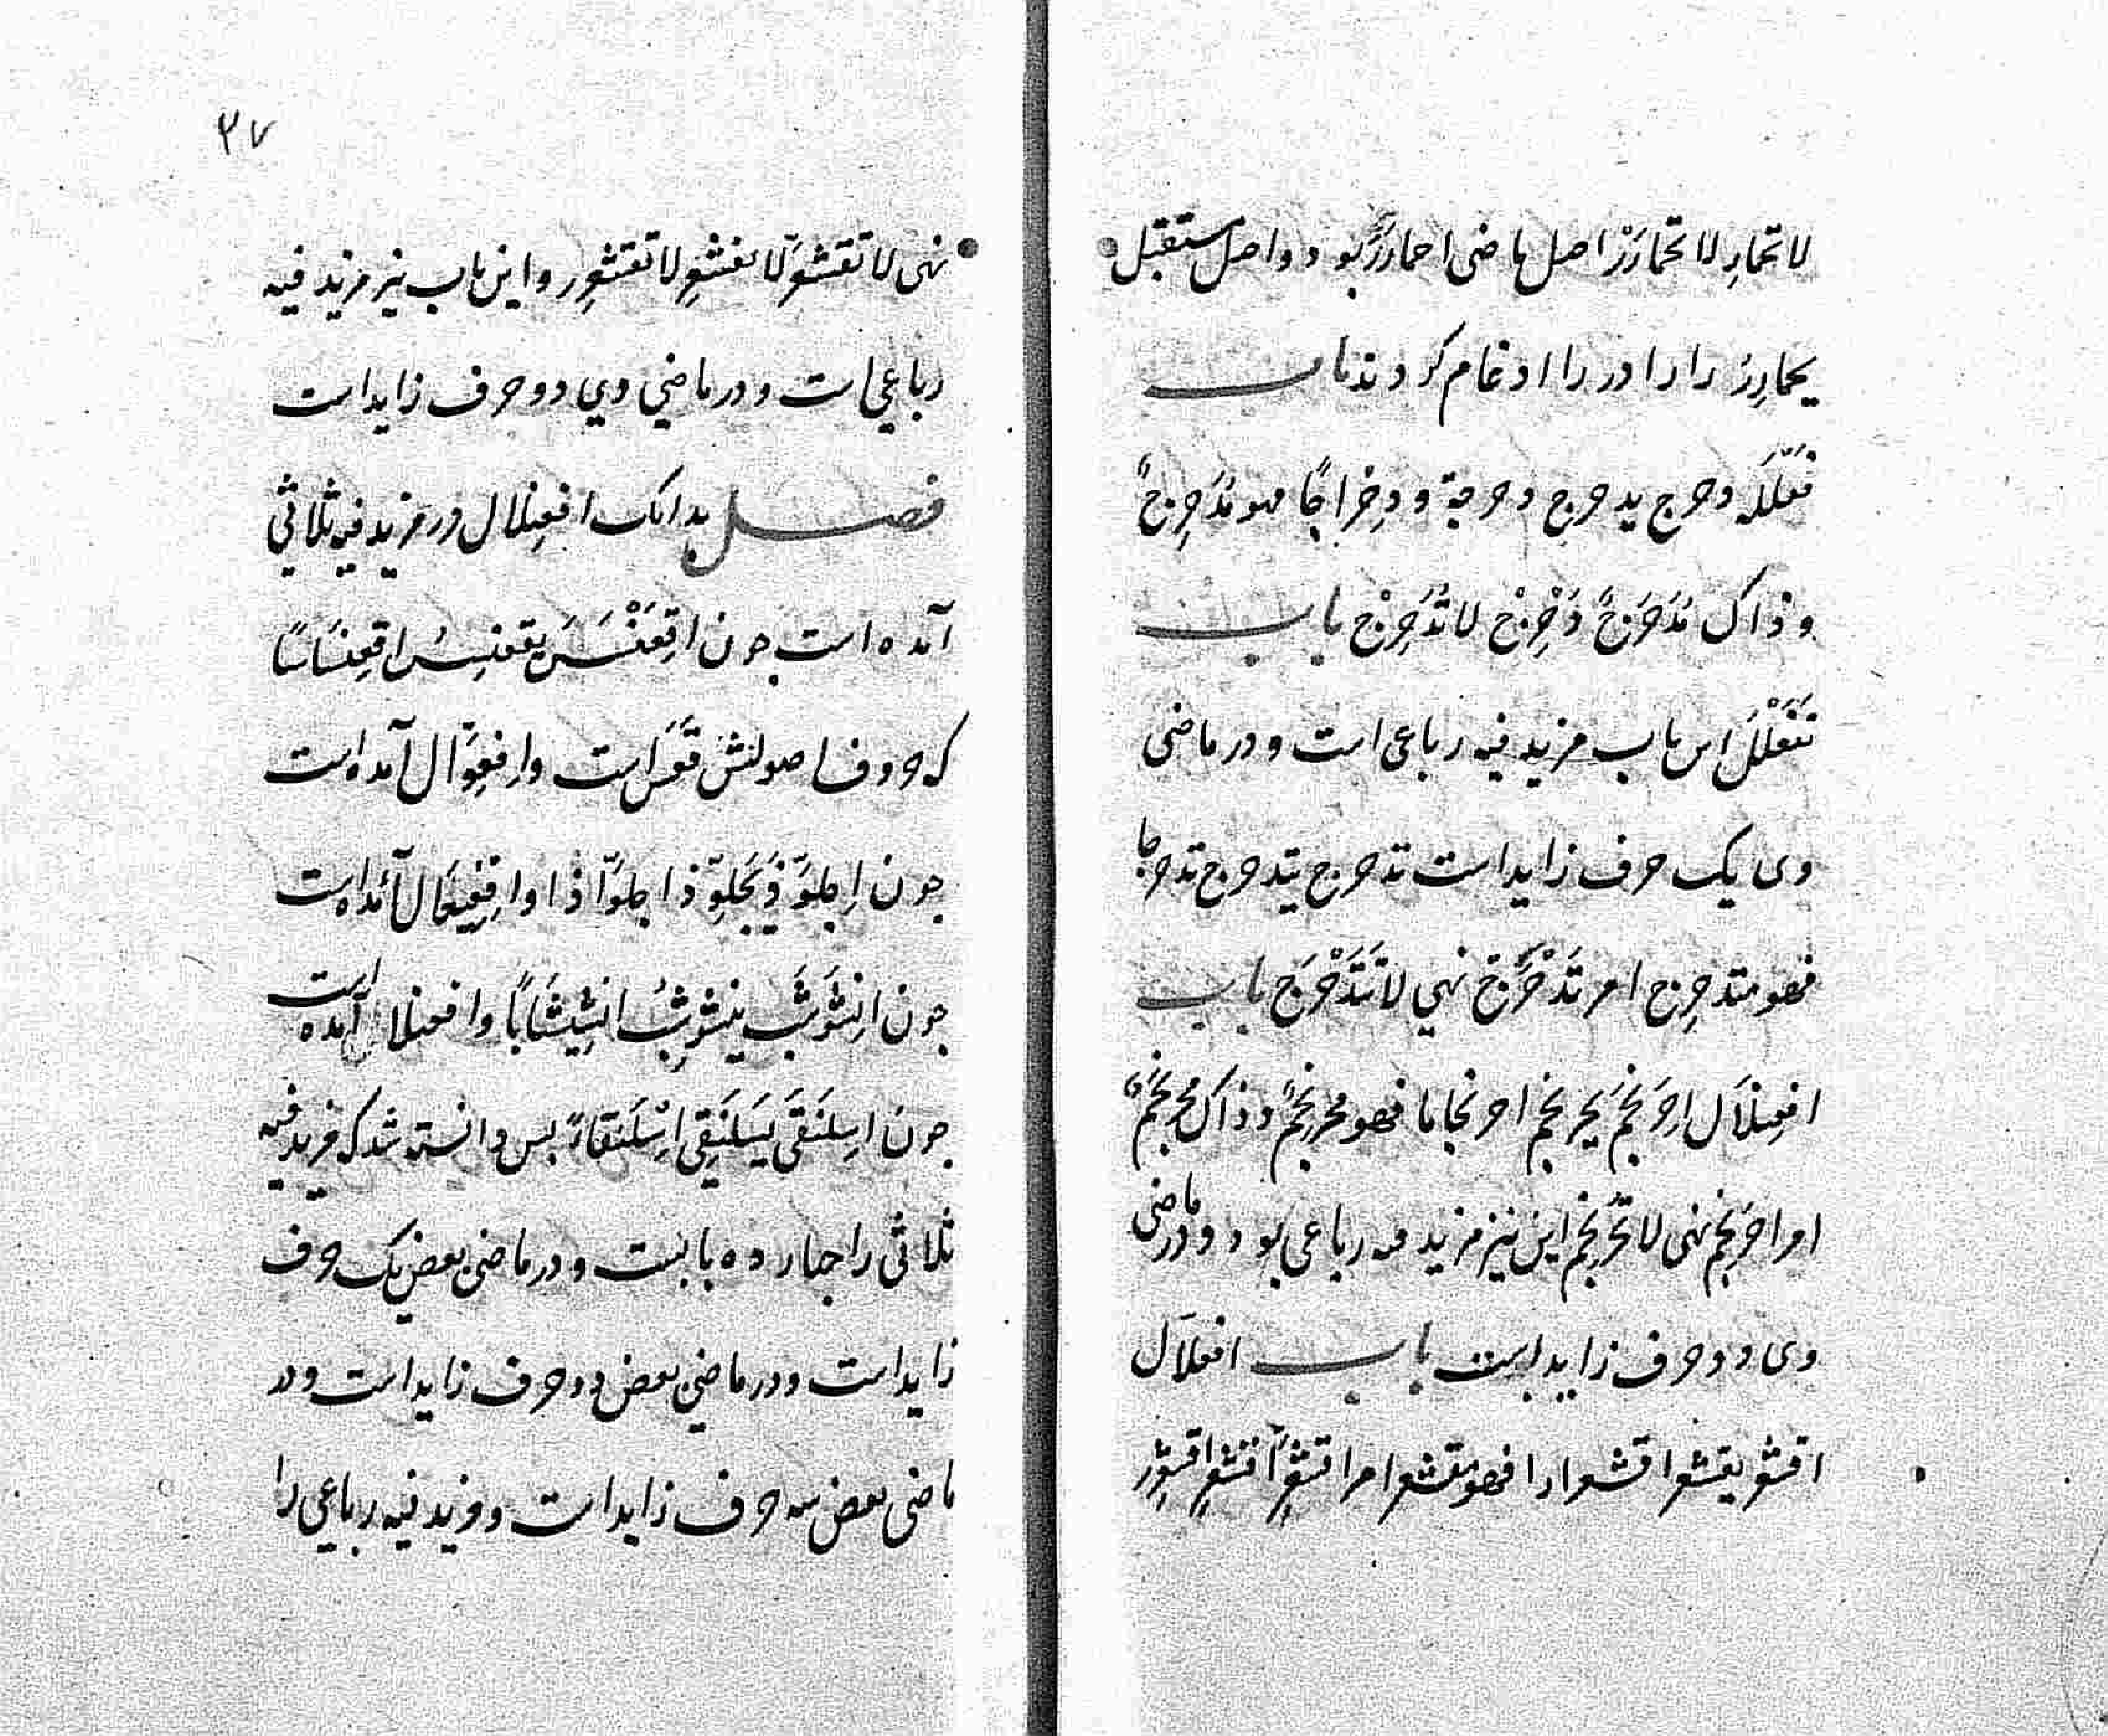 لا تحمارِ لا تحمارَرْ اصل ماضی احمارَرَ بود و اصل مستقبل
یحمارِرُ را را در را ادغام کردند باب
فَعْلَلَه دحرج یدحرج دحرجة و دِحْرَاجًا فهو مُدَحرِجٌ
و ذاک مُدَحْرَجٌ دَحْرِجْ لا تُدَحْرِجْ باب
تَفَعْلَلَ این باب مزید فیه رباعی است و در ماضی
وی یک حرف زاید است تدحرج یتدحرج تدحرجا
فهو متدحرِج امر تَدَحْرَجْ نهی لا تَتَدَحْرَج باب
افعِنلاَل اِحرَنجَمَ یحرنجم احرنجاما فهو محرنجِمٌ و ذاک محرنجَمٌ
امر احرَنجِم نهی لا تحرنجِم این نیز مزید فیه رباعی بود و در ماضی
وی دو حرف زاید است باب افعلاَل
اقشعر یقشعر اقشعرارا فهو مقشعر امر اقشعِرَّ اقشعِرِّ اقشعرِر
۳۷
نهی لا تقشعرَّ لا تقشعرِّ لا تقشعرِر و این باب نیز مزید فیه
رباعی است و در ماضی وی دو حرف زاید است
فصل بدانک افعِنلال در مزید فیه ثلاثی
آمده است جون اقعَنْسَسَ یقعنسِسُ اقعِنسَاسًا
که حروف اصولش قَعَسَ است و اِفعِوّال آمده است
جون اِجلوَّذَ یَجلوِّذ اجلوّاذا و اِفعِیعَال آمده است
جون اِعشَوشَبَ یعشوشِبُ اعشِیشَابًا و افعنلا آمده است
جون اسلَنقَی یَسلَنقِی اسْلَنقاءً بس دانسته شد که مزید فیه
ثلاثی را جهارده بابست و در ماضی بعض یک حرف
زاید است و در ماضی بعض دو حرف زاید است و در
ماضی بعض سه حرف زاید است و مزید فیه رباعی را